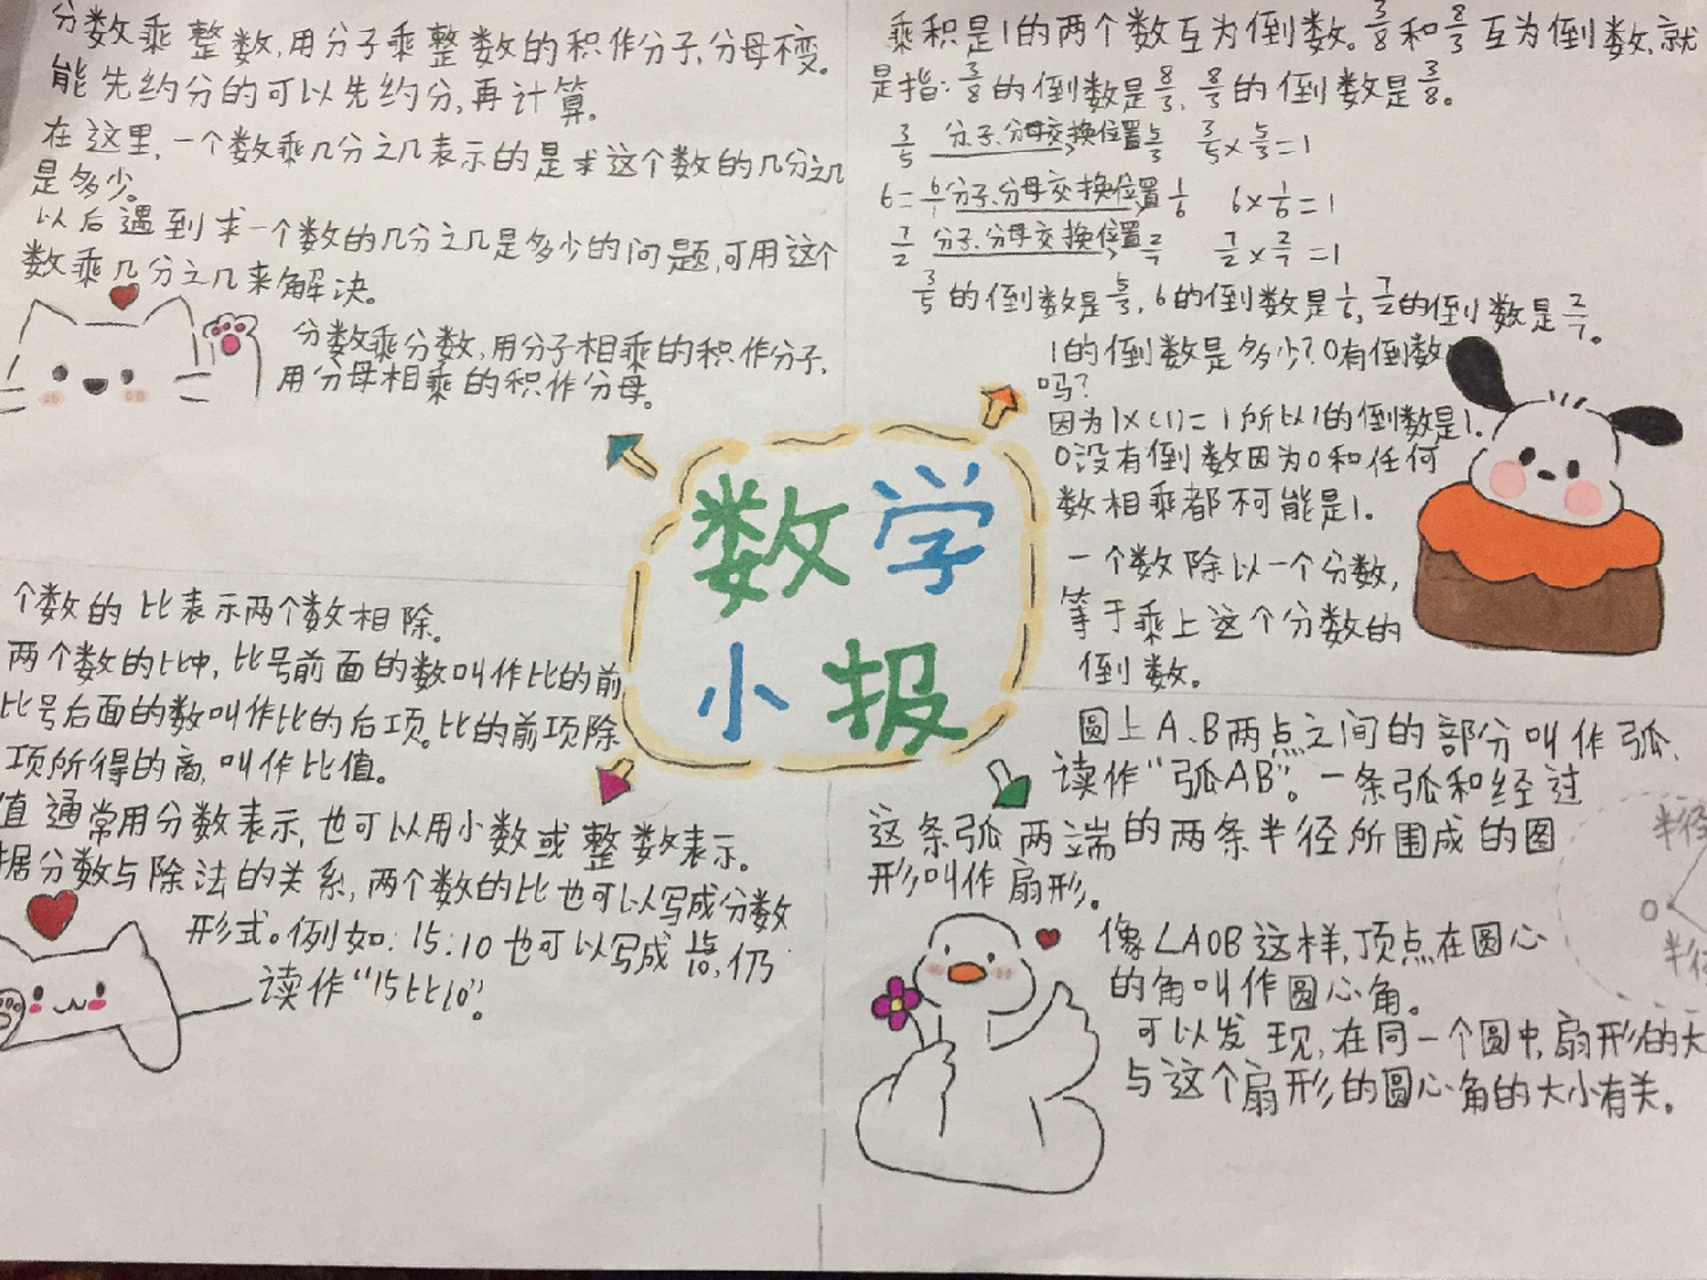 分数乘整数,用分子乘整数的积作分子,分母不变。
能先约分的可以先约分,再计算。
在这里,一个数乘几分之几表示的是求这个数的几分之几
是多少。
以后遇到求一个数的几分之几是多少的问题,可用这个
数乘几分之几来解决。
分数乘分数,用分子相乘的积作分子,
用分母相乘的积作分母。
乘积是1的两个数互为倒数。3/8和8/3互为倒数,就
是指:3/8的倒数是8/3,8/3的倒数是3/8。
3/5 分子、分母交换位置 5/3 3/5×5/3=1
6=6/1 分子、分母交换位置 1/6 6×1/6=1
7/2 分子、分母交换位置 2/7 7/2×2/7=1
3/5的倒数是5/3,6的倒数是1/6,7/2的倒数是2/7。
1的倒数是多少?0有倒数
吗?
因为1×(1)=1所以1的倒数是1.
0没有倒数因为0和任何
数相乘都不可能是1.
一个数除以一个分数,
等于乘上这个分数的
倒数。
数学
小报
个数的比表示两个数相除。
两个数的比中,比号前面的数叫作比的前
比号后面的数叫作比的后项。比的前项除
项所得的商,叫作比值。
值通常用分数表示,也可以用小数或整数表示。
据分数与除法的关系,两个数的比也可以写成分数
形式。例如:15:10也可以写成15/10,仍
读作“15比10”。
圆上A、B两点之间的部分叫作弧,
读作“弧AB”。一条弧和经过
这条弧两端的两条半径所围成的图
形叫作扇形。
半径
O
半径
像∠AOB这样,顶点在圆心
的角叫作圆心角。
可以发现,在同一个圆中,扇形的大
与这个扇形的圆心角的大小有关。